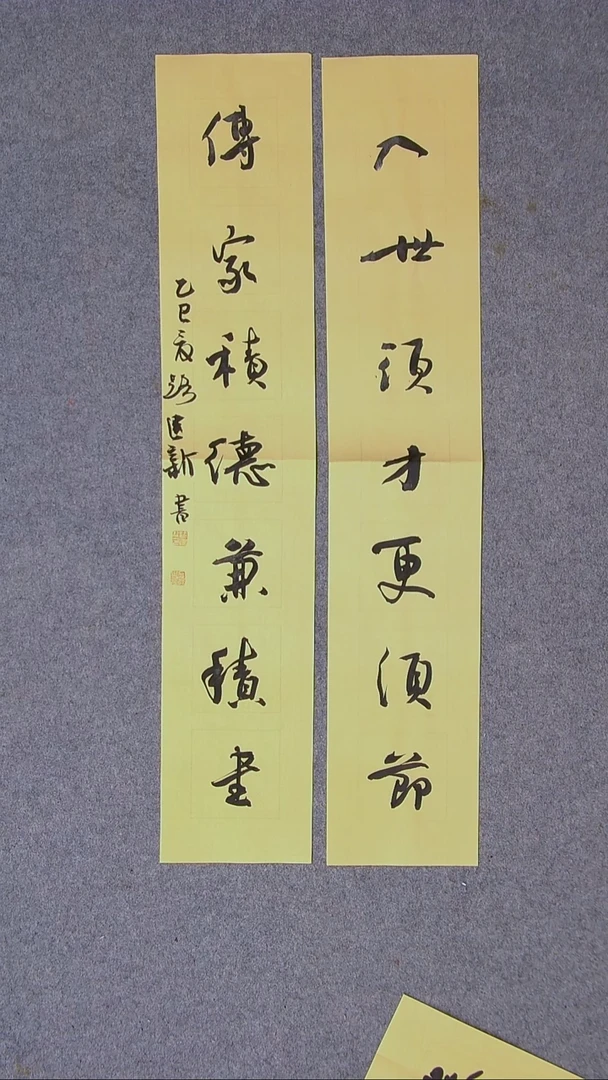 入世須才更須節
傳家積德兼積書
乙巳夏 路建新 書